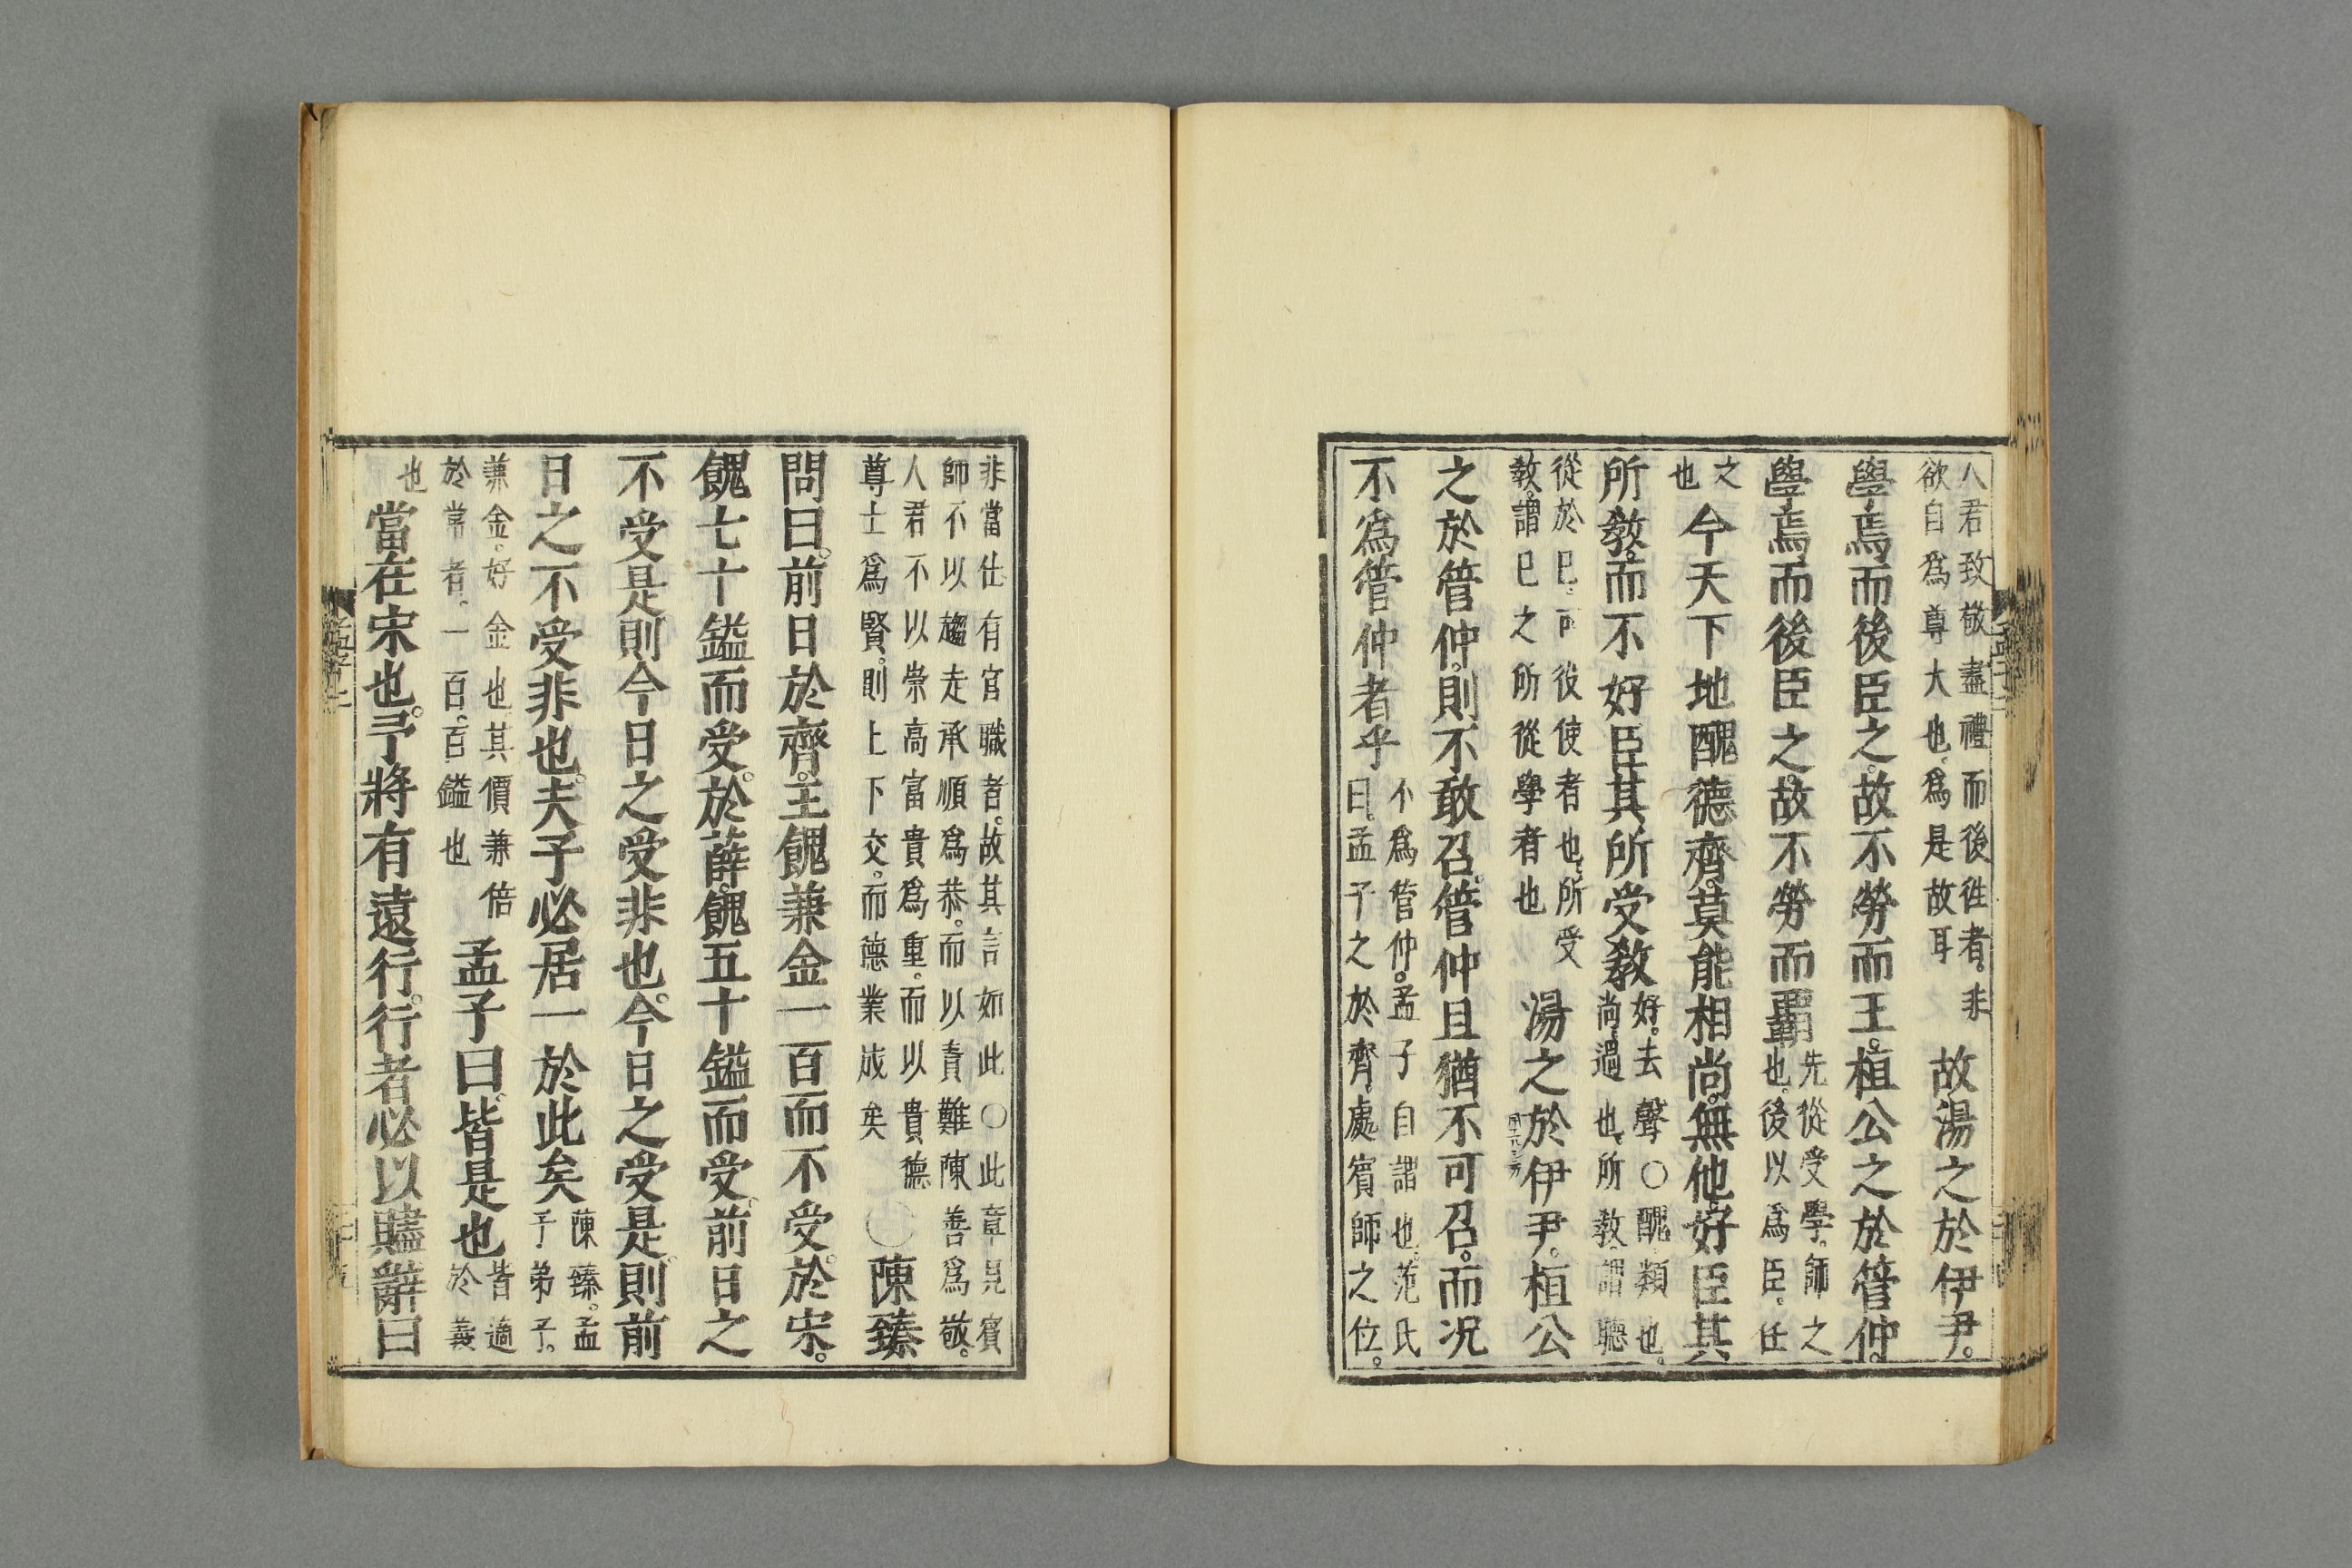 人君致敬盡禮而後徃者。非
欲自爲尊大也、爲是故耳
故湯之於伊尹。
學焉而後臣之。故不勞而王。桓公之於管仲。
學焉而後臣之。故不勞而霸
先從受學。師之
也。後以爲臣。任
之
也
今天下地醜德齊。莫能相尚。無他。好臣其
所敎。而不好臣其所受敎
好。去聲〇醜、類也。
尚、過也、所敎、謂聽
從於己。可役使者也、所受
敎。謂己之所從學者也
湯之於伊尹。桓公
之於管仲。則不敢召。管仲且猶不可召。而况
不爲管仲者乎
不爲管仲。孟子自謂也。范氏
曰。孟子之於齊、處賓師之位。
非當仕有官職者。故其言如此〇此章見賓
師不以趨走承順爲恭。而以責難陳善爲敬。
人君不以崇高富貴爲重。而以貴德
尊士爲賢。則上下交。而德業成矣
〇陳臻
問曰。前日於齊。王餽兼金一百而不受。於宋。
餽七十鎰而受。於薛。餽五十鎰而受。前日之
不受是則今日之受非也。今日之受是。則前
日之不受非也。夫子必居一於此矣
陳臻。孟
子弟子。
兼金。好金也、其價兼倍
於常者。一百。百鎰也
孟子曰、皆是也
皆適
於義
也
當在宋也。予將有遠行。行者必以贐辭曰